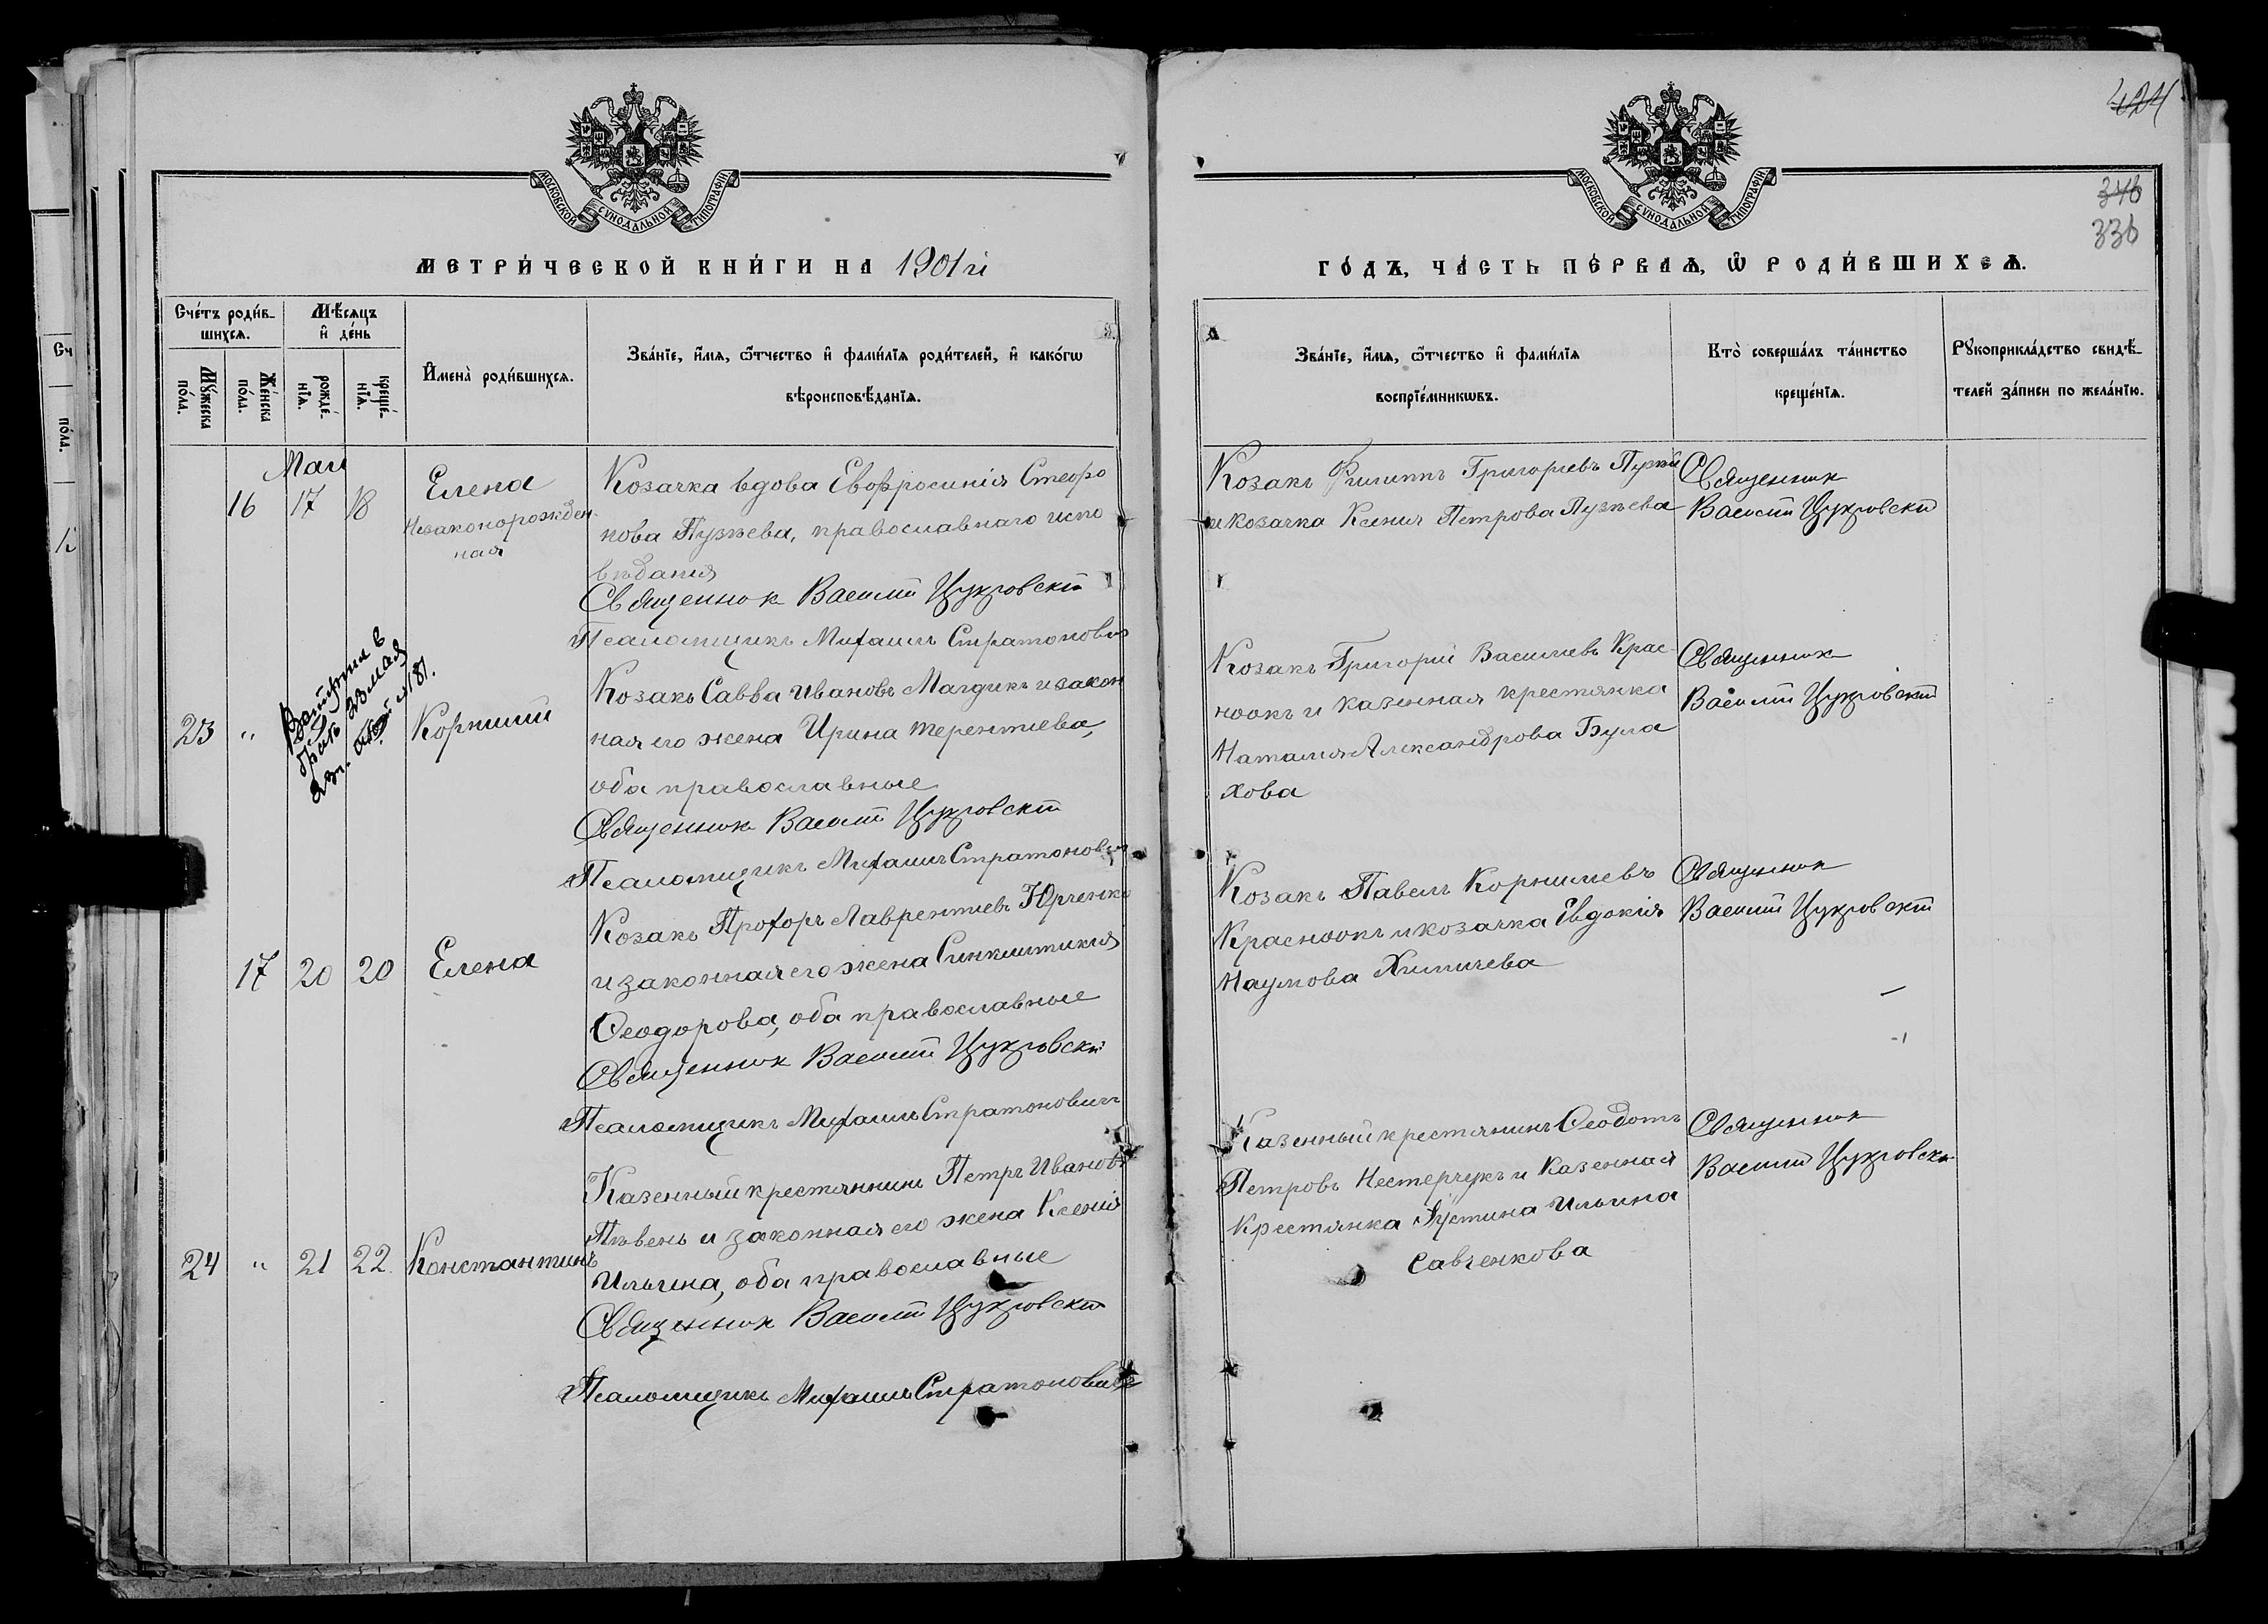 424
346
336
МОСКОВСКОЙ СУНОДАЛЬНОЙ ТИПОГРАФІИ
МОСКОВСКОЙ СУНОДАЛЬНОЙ ТИПОГРАФІИ
МЕТРИ́ЧЕСКОЙ КНИ́ГИ НА 1901 й
ГО́ДЪ, ЧА́СТЬ ПЕ́РВАѦ, Ѽ РОДИ́ВШИХСѦ.
Счéтъ роди́в-
шихсѧ.
Мѣ́сѧцъ
и҆ де́нь
Мꙋ́жеска по́ла.
Же́нска по́ла.
рожде́-нїѧ.
креще́-нїѧ.
И҆мена̀ роди́вшихсѧ.
Зва́нїе, и҆́мѧ, ѻ҆́тчество и҆ фами́лїѧ роди́телей, и҆ како́гѡ
вѣроисповѣ́данїѧ.
Зва́нїе, и҆́мѧ, ѻ҆́тчество и҆ фами́лїѧ
воспрїе́мникѡвъ.
Кто̀ соверша́лъ та́инство
креще́нїѧ.
Рꙋкоприкла́дство свидѣ́-
телей за́писи по жела́нїю.
Маи
16 17 18 Елена
Незаконорожден-
ная
Козачка вдова Евфросинія Стефа
нова Пузѣева, православнаго испо
вѣданія
Священник Василій Цукровскій
Псаломщикъ Михаилъ Стратоновичъ
Козакъ Филиппъ Григорьевъ Пузѣ
и козачка Ксенія Петрова Пузѣева
Священник
Василій Цукровскій
23 " Корнилій
брак 23 мая
181.
Козакъ Савва Ивановъ Магдикъ и закон
ная его жена Ирина Терентіева,
оба православные
Священник Василій Цукровскій
Псаломщикъ Михаилъ Стратоновичъ
Козакъ Григорій Васильевъ Крас-
ноокъ и казенная крестянка
Наталія Александрова Була
хова
Священник
Василій Цукровскій
17 20 20 Елена
Козакъ Прохоръ Лаврентіевъ Юрченко
и законная его жена Синклитикія
Ѳеодорова, оба православные
Священник Василій Цукровскій
Псаломщикъ Михаилъ Стратоновичъ
Козакъ Павелъ Корниліевъ
Красноокъ и козачка Евдокія
Наумова Химичева
Священник
Василій Цукровскій
24 " 21 22 Константинъ
Казенный крестяннинъ Петръ Ивановъ
Пѣвень и законная его жена Ксенія
Ильина, оба православные
Священник Василій Цукровскій
Псаломщикъ Михаилъ Стратоновичъ
Казенный крестянинъ Ѳеодотъ
Петровъ Нестерчукъ и казенная
крестянка Іустина Ильина
Савченкова
Священник
Василій Цукровскій